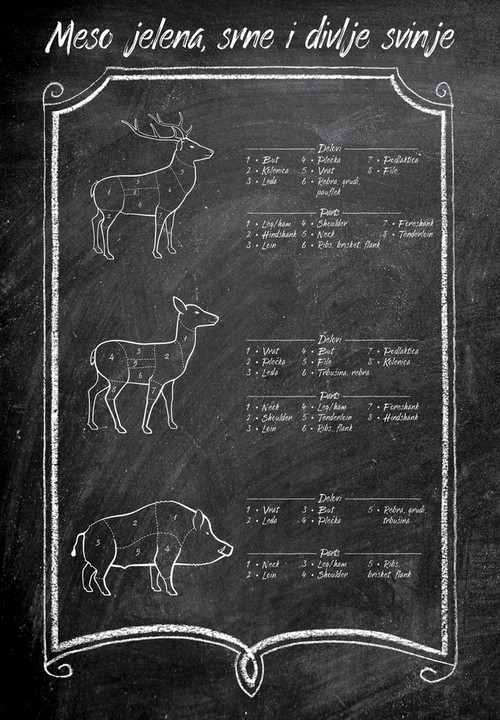 Meso jelena, srne i divlje svinje
Delovi
1 • But 4 • Plećka 7 • Podlaktica
2 • Kolenica 5 • Vrat 8 • File
3 • Leđa 6 • Rebra, grudi,
pauflek
Parts
1 • Leg/ham 4 • Shoulder 7 • Foreshank
2 • Hindshank 5 • Neck 8 • Tenderloin
3 • Loin 6 • Ribs, brisket, flank
Delovi
1 • Vrat 4 • But 7 • Podlaktica
2 • Plećka 5 • File 8 • Kolenica
3 • Leđa 6 • Trbušina, rebra
Parts
1 • Neck 4 • Leg/ham 7 • Foreshank
2 • Shoulder 5 • Tenderloin 8 • Hindshank
3 • Loin 6 • Ribs, flank
Delovi
1 • Vrat 3 • But 5 • Rebra, grudi,
2 • Leđa 4 • Plećka trbušina
Parts
1 • Neck 3 • Leg/ham 5 • Ribs,
2 • Loin 4 • Shoulder brisket, flank